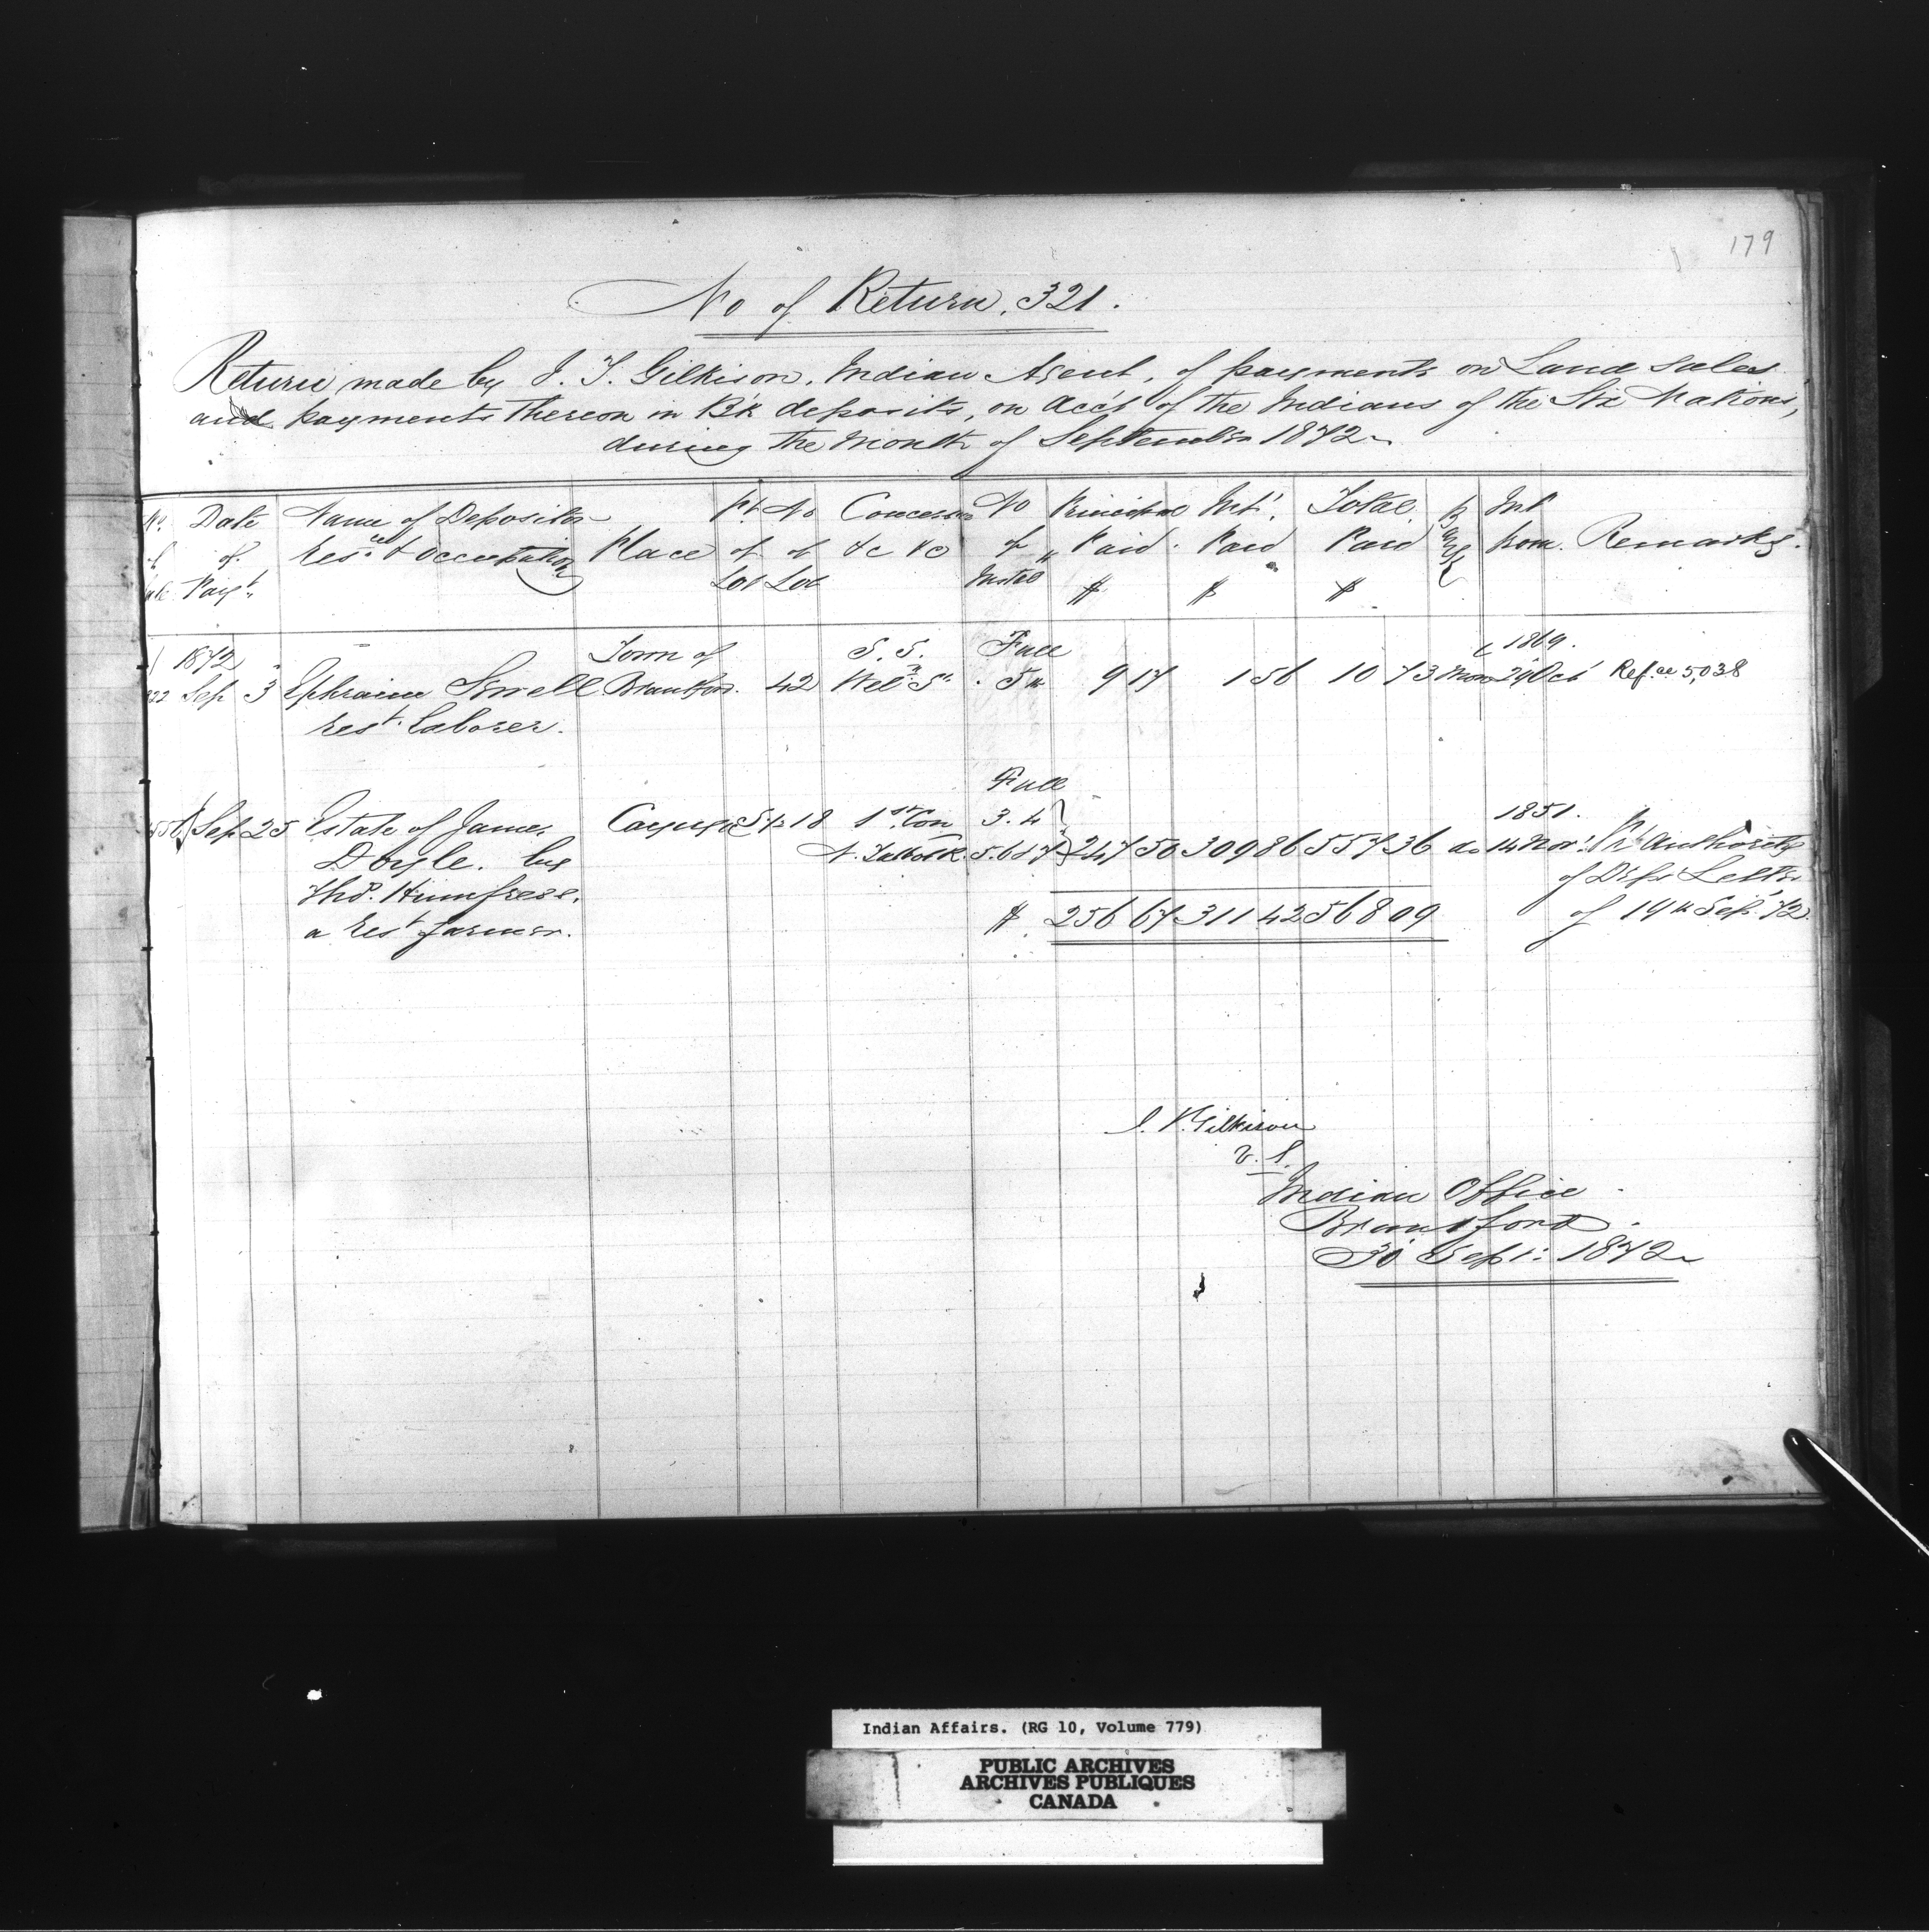 179
No of Return. 321.
Return made by J. T. Gilkison, Indian Agent, of payments on Land sales
and payments thereon in B'k deposits, on acc't of the Indians of the Six Nations,
during the Month of September 1872
No. of Sale Date of Paym't Name of Depositor Resce & occupation Place Pt of Lot No of Lot Concession &c &c No of Instal Principal Paid $ Int. Paid $ Total Paid $ Bank Int from Remarks.
1872 Town of S. S. Full 1869.
Sep 3 Ephraim Brantford. 42 Wel.n St. 5th 9 17 1 56 10 73 Mon 29 Oct Ref.ce 5,038
rest laborer.
Full
Sep 25 Estate of James Cayuga 18 1st Con 3. 4 1851.
Doyle. by N. Talbot R. 5. 6 & 7 247 50 309 86 557 36 do 14 Nov. Pr authority
Thos. Humfrese. of Dept Letter
a rest farmer. $ 256 67 311 42 568 09 of 19th Sep. '72.
J. T. Gilkison
v. s.
Indian Office
Brantford
30 Sept: 1872
Indian Affairs. (RG 10, Volume 779)
PUBLIC ARCHIVES
ARCHIVES PUBLIQUES
CANADA